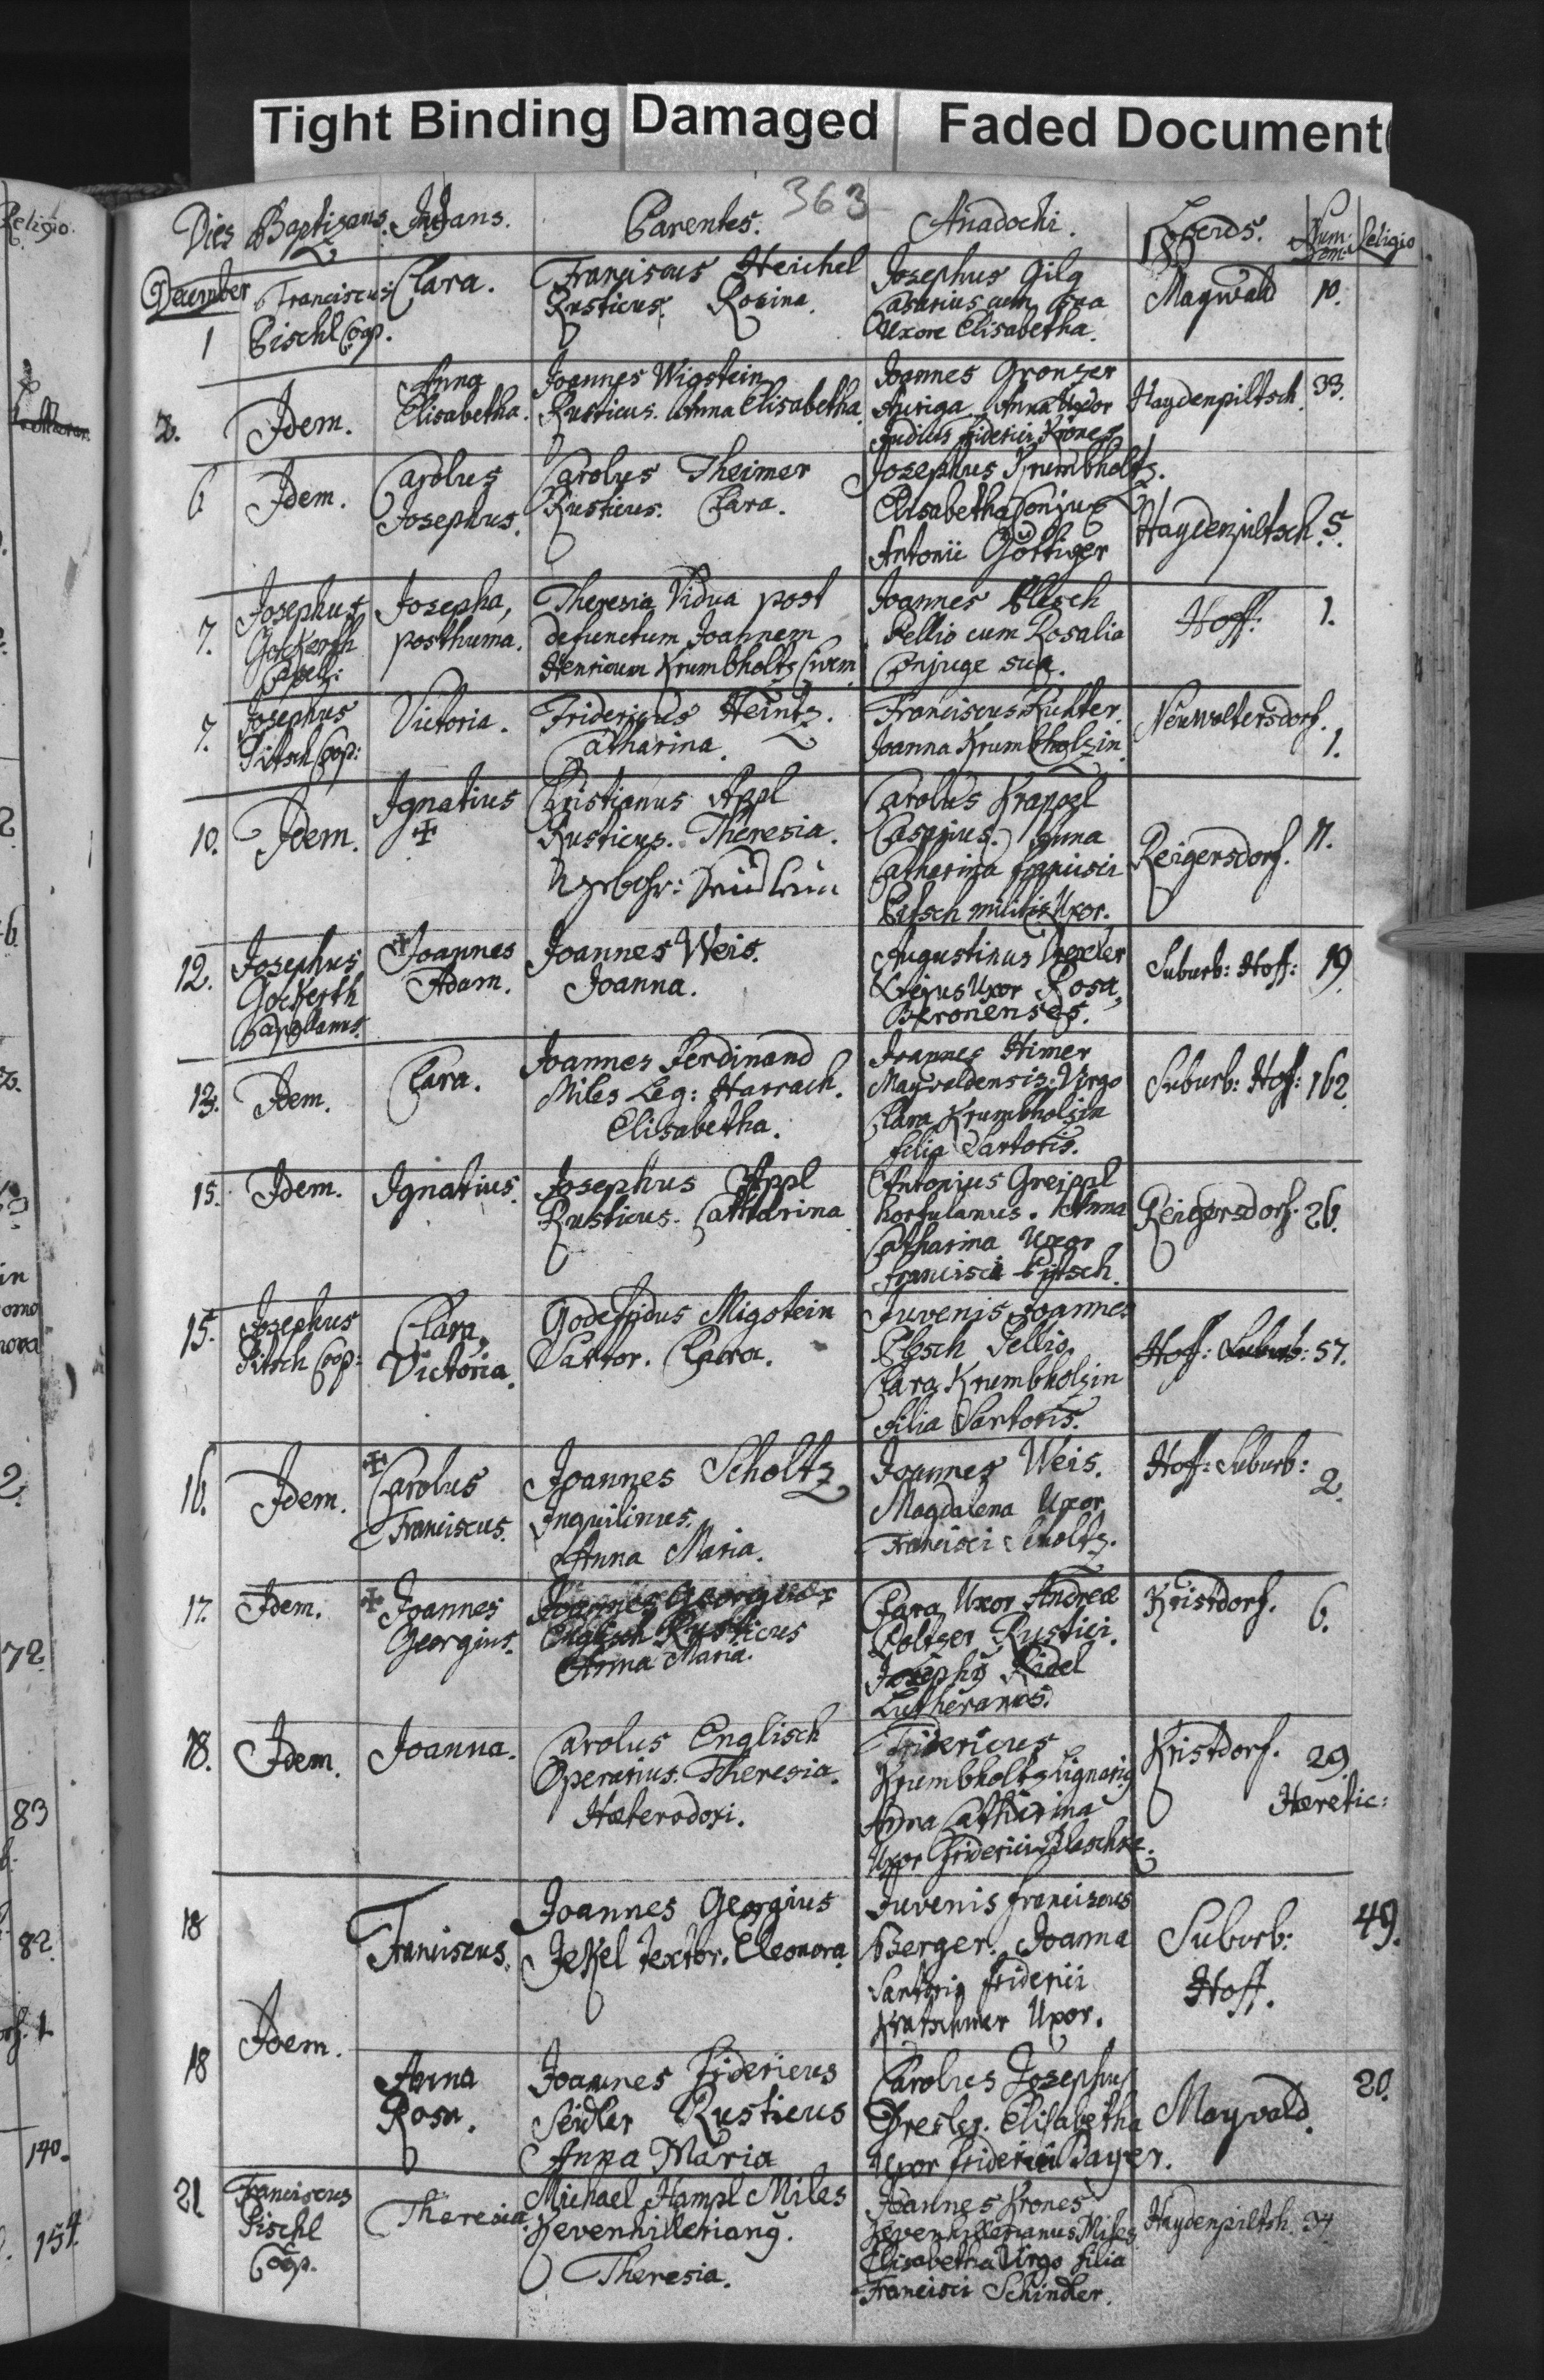 Tight Binding Damaged Faded Document
363
Dies Baptizans. Infans. Parentes. Anadochi. Num: Religio
December
1 Franciscus Pischl Coop. Clara.
Franciscus Heichel
Rusticus. Rosina.
Josephus Gilg
Casarius cum sua
Uxore Elisabetha.
Maywald 10.
2. Idem. Anna
Elisabetha.
Joannes Wigstein
Rusticus. Anna Elisabetha
Joannes Gronger
Auriga Anna Uxor
Friderici Krones
Haydenpiltsch. 33.
6 Idem. Carolus
Josephus.
Carolus Theimer
Rusticus. Clara.
Josephus Krumbholtz.
Elisabetha Conjux
Antonii Göttiger
Haydenpiltsch. 5.
7. Josephus
Gockerth
Capel:
Josepha,
posthuma.
Theresia Vidua post
defunctum Joannem
Henricum Krumbholtz Civem
Joannes Plesch
Pellio cum Rosalia
Conjuge sua.
Hoff: 1.
7. Josephus
Pitsch Coop:
Victoria.
Fridericus Heintz.
Catharina.
Franciscus
Joanna Krumbholzin
Neuwaltersdorf.
1.
10. Idem. Ignatius
✠
Christianus Appl
Rusticus. Theresia.
Carolus Krappel
Casarius. Anna
Catharina Francisci
Pitsch militis Uxor.
Reigersdorf. 11.
12. Josephus
Gockerth
Capellanus.
✠ Joannes
Adam.
Joannes Weis.
Joanna.
Augustinus
Ejus Uxor Rosa,
Beronenses.
Suburb: Hoff: 19.
13. Idem. Clara.
Joannes Ferdinand
Miles Leg: Harrach.
Elisabetha.
Joannes Himer
Maywaldensis: Virgo
Clara Krumbholzin
filia Sartoris.
Suburb: Hoff: 162
15. Idem. Ignatius.
Josephus Appl
Rusticus. Catharina
Antonius Greippl
hortulanus. Anna
Catharina Uxor
Francisci Pitsch.
Reigersdorf. 26.
15. Josephus
Pitsch Coop:
Clara
Victoria.
Godefridus Migstein
Sartor. Clara.
Juvenis Joannes
Plesch Pellio.
Clara Krumbholzin
filia Sartoris.
Hoff: Suburb: 57.
16. Idem. ✠ Carolus
Franciscus.
Joannes Scholtz
Inquilinus.
Anna Maria.
Joannes Weis.
Magdalena Uxor
Francisci Scholtz.
Hoff: Suburb: 2.
17. Idem. ✠ Joannes
Georgius.
Joannes Georgius
Englisch Rusticus
Anna Maria.
Clara Uxor Andreæ
Poltzer Rustici.
Josephus Ridel
Lutheranus.
Kristdorf. 6.
18. Idem. Joanna.
Carolus Englisch
Operarius. Theresia.
Hæterodoxi.
Fridericus
Krumbholtz Lignarius
Anna Catharina
Uxor Friderici Blaschke.
Kristdorf. 29.
Hæretic:
18 Franciscus.
Joannes Georgius
Jekel Textor. Eleonora
Juvenis Franciscus
Berger. Joanna
Sartoris Friderici
Kratschmer Uxor.
Suburb:
Hoff.
49.
Idem.
18 Anna
Rosa.
Joannes Fridericus
Seidler Rusticus
Anna Maria
Carolus Josephus
Dresler. Elisabetha
Uxor Friderici Bayer.
Maywald. 20.
21 Franciscus
Pischl
Coop.
Theresia
Michael Hampl Miles
Kevenhillerianus.
Theresia.
Joannes Krones
Kevenhillerianus Miles
Elisabetha Virgo filia
Francisci Schindler.
Haydenpiltsch. 34